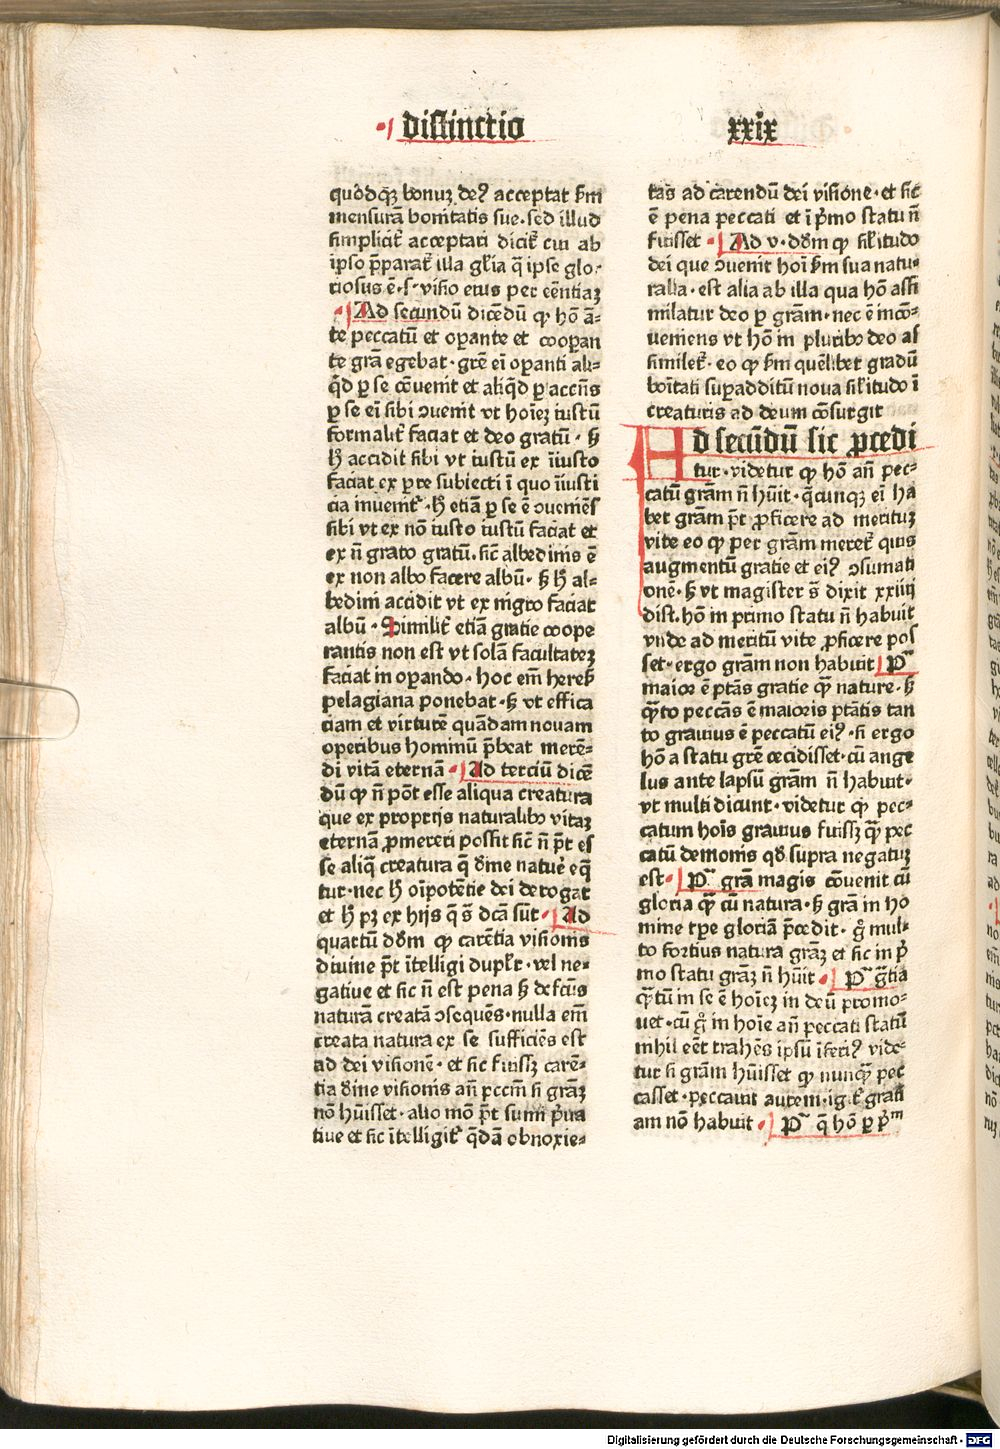 distinctio
xxix
quodqꝫ bonuꝫ deꝰ acceptat ẜm
mensurā bonitatis sue. sed illud
simplicit᷑ acceptari dicit᷑ cui ab
ipso p̄parat᷑ illa gl̄ia q̄ ipse glo⸗
riosus ē. s. visio eius per eēntiaꝫ
Ad secundū dicēdū ꝙ hō ā⸗
te peccatū et oꝑante et cooꝑan
te grā egebat. grē eī oꝑanti ali⸗
qͥd ꝑ se cōuenit et aliqͥd ꝑ accn̄s
ꝑ se eī sibi ꝯuenit vt hoīeꝫ iustū
formalit᷑ faciat et deo gratū. ẞ
h̄ accidit sibi vt iustū ex īiusto
faciat ex ꝑte subiecti ī quo īiusti
cia inuenit᷑. h̄ etiā ꝑ se ē ꝯueniēs
sibi vt ex nō iusto iustū faciat et
ex n̄ grato gratū. sic̄ albedinis ē
ex non albo facere albū. ẞ h̄ al⸗
bedini accidit vt ex nigro faciat
albū. Similit᷑ etiā gratie coope
rantis non est vt solā facultateꝫ
faciat in oꝑando. hoc em̄ heres᷑
pelagiana ponebat. ẞ vt effica
ciam et virtutē quādam nouam
operibus hominū p̄beat merē⸗
di vitā eternā Ad terciū dicē
dū ꝙ n̄ pōt esse aliqua creatura
que ex proprijs naturalibꝰ vitaꝫ
eternā ꝓmereri possit sic̄ n̄ pōt es
se aliq̄ creatura q̄ diuīe nature eq̄
tur. nec h̄ oīpotētie dei derogat
et h̄ pꝫ ex hijs q̄ s̄ dcā sūt. Ad
quartū dōm ꝙ carētia visionis
diuine pōt ītelligi dupl̄r. vel ne⸗
gatiue et sic n̄ est pena ẞ defctūs
naturā creatā ꝯsequēs. nulla em̄
creata natura ex se sufficiēs est
ad dei visionē. et sic fuissꝫ carē⸗
tia diuīe visionis an̄ pccm̄ si grāꝫ
nō hūisset. alio mō pōt sumi p̄ua
tiue et sic ītelligit᷑ qͣdā obnoxie⸗
tas ad carendū dei visiōne. et sic
ē pena peccati et ī p̄mo statu n̄
fuisset Ad v. dōm ꝙ sil̄itudo
dei que ꝯuenit hoī ẜm sua natu⸗
ralia. est alia ab illa qua hō assi
milatur deo ꝑ grām. nec ē incō⸗
ueniens vt hō in pluribꝰ deo as
similet᷑. eo ꝙ ẜm quēlibet gradū
bōitati suꝑadditū noua sil̄itudo ī
creaturis ad deum cōsurgit
Ad secūdū sic ꝓcedi
tur. videtur ꝙ hō an̄ pec⸗
catū grām n̄ hūit. qͥcunqꝫ eī ha
bet grām pōt ꝓficere ad meritūꝫ
vite eo ꝙ per grām meret᷑ quis
augmentū gratie et eiꝰ ꝯsumati
onē. ẞ vt magister s̄ dixit xxiiij
dist. hō in primo statu n̄ habuit
vnde ad meritū vite ꝓficere pos
set. ergo grām non habuit Pͣ
maior ē ptās gratie qͣꝫ nature. ẞ
qͣto peccās ē maioris ptātis tan
to grauius ē peccatū eiꝰ. si ergo
hō a statu grē cecidisset. cū ange
lus ante lapsū grām n̄ habuit.
vt multi dicunt. videtur ꝙ pec⸗
catum hoīs grauius fuissꝫ qͣꝫ pec
catū demonis qd̄ supra negatuꝫ
est. Pͣ grā magis cōuenit cū
gloria qͣꝫ cū natura. ẞ grām in ho
mine tꝑe gloriā p̄cedit. gͦ mul⸗
to fortius natura grāꝫ et sic in p̄
mo statu grāꝫ n̄ hūit Pͣ gͣtia
qͣꝫtū in se ē hoīeꝫ in deū promo⸗
uet. cū gͦ in hoīe an̄ peccati statū
nihil eēt trahēs ipsū īferiꝰ vide⸗
tur si grām hūisset ꝙ nunqͣꝫ pec
casset. peccauit autem. igit᷑ grati
am nō habuit Pͣ q̄ hō ꝑ p̄ᵐ
Digitalisierung gefördert durch die Deutsche Forschungsgemeinschaft - DFG